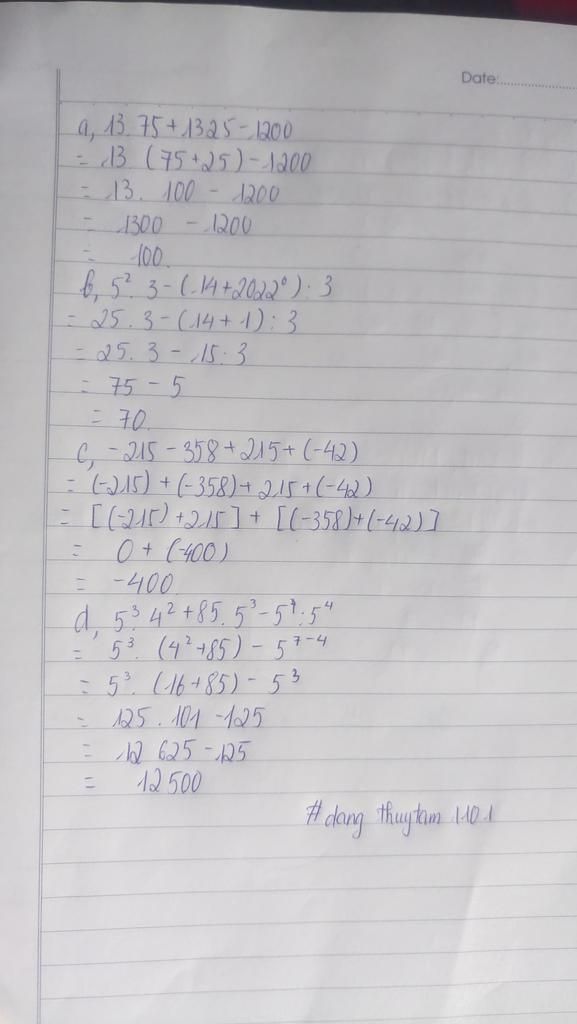 Date:
a, 13.75+1325-1200
= 13 (75+25)-1200
= 13. 100 - 1200
= 1300 - 1200
= 100.
b, 5². 3-(14+2022⁰): 3
= 25. 3-(14+1): 3
= 25. 3 - 15: 3
= 75 - 5
= 70.
c, -215-358+215+(-42)
= (-215)+(-358)+215+(-42)
= [(-215)+215]+[(-358)+(-42)]
= 0+(-400)
= -400
d, 5³. 4²+85. 5³-5⁷: 5⁴
= 5³. (4²+85) - 5⁷⁻⁴
= 5³. (16+85) - 5³
= 125. 101 -125
= 12 625 -125
= 12500
#dang thuytam 1101